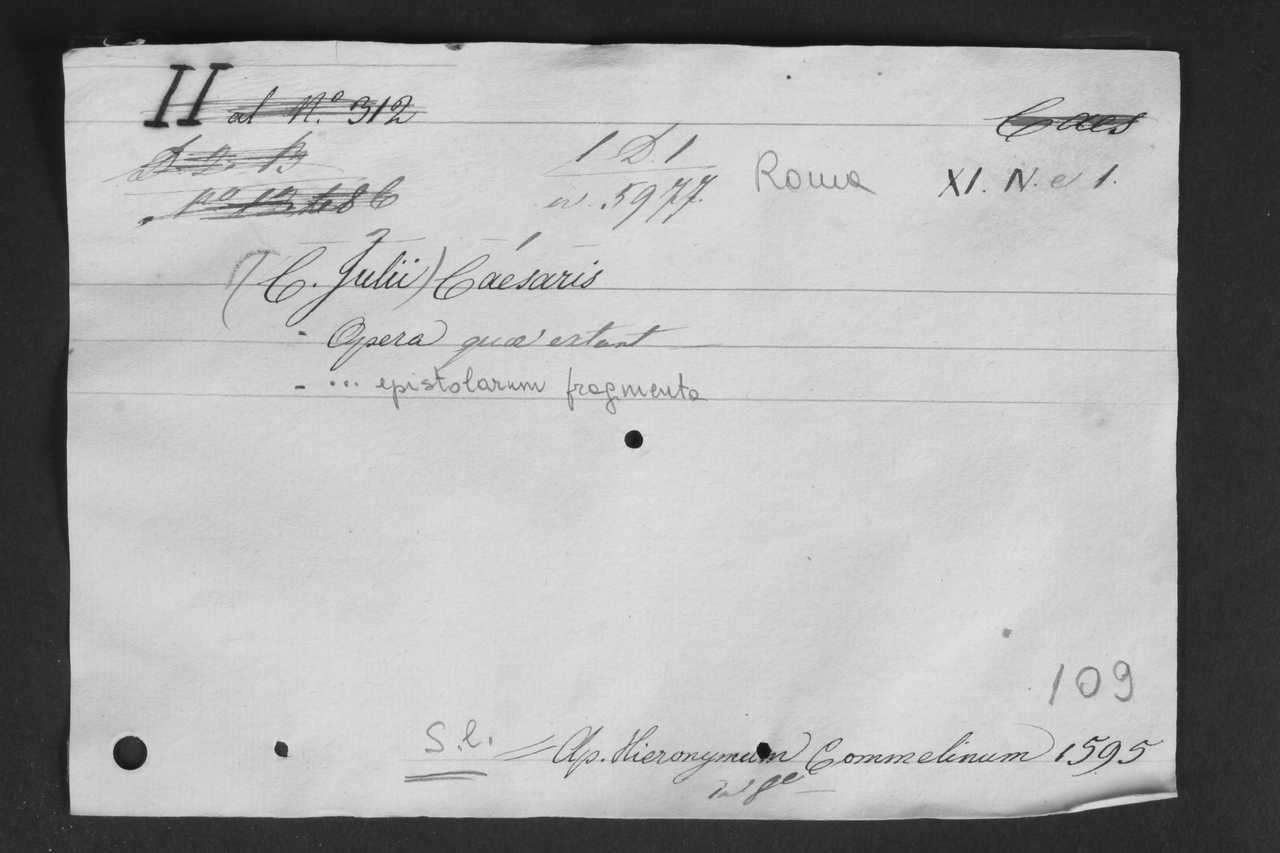 II al N.º 312
Caes
1 D. 1
Roma
XI. N. e 1.
5977.
(C. Julii) Caesaris
- Opera quæ extant
- ... epistolarum fragmenta
109
S.l. = Ap. Hieronymum Commelinum 1595
in 8º